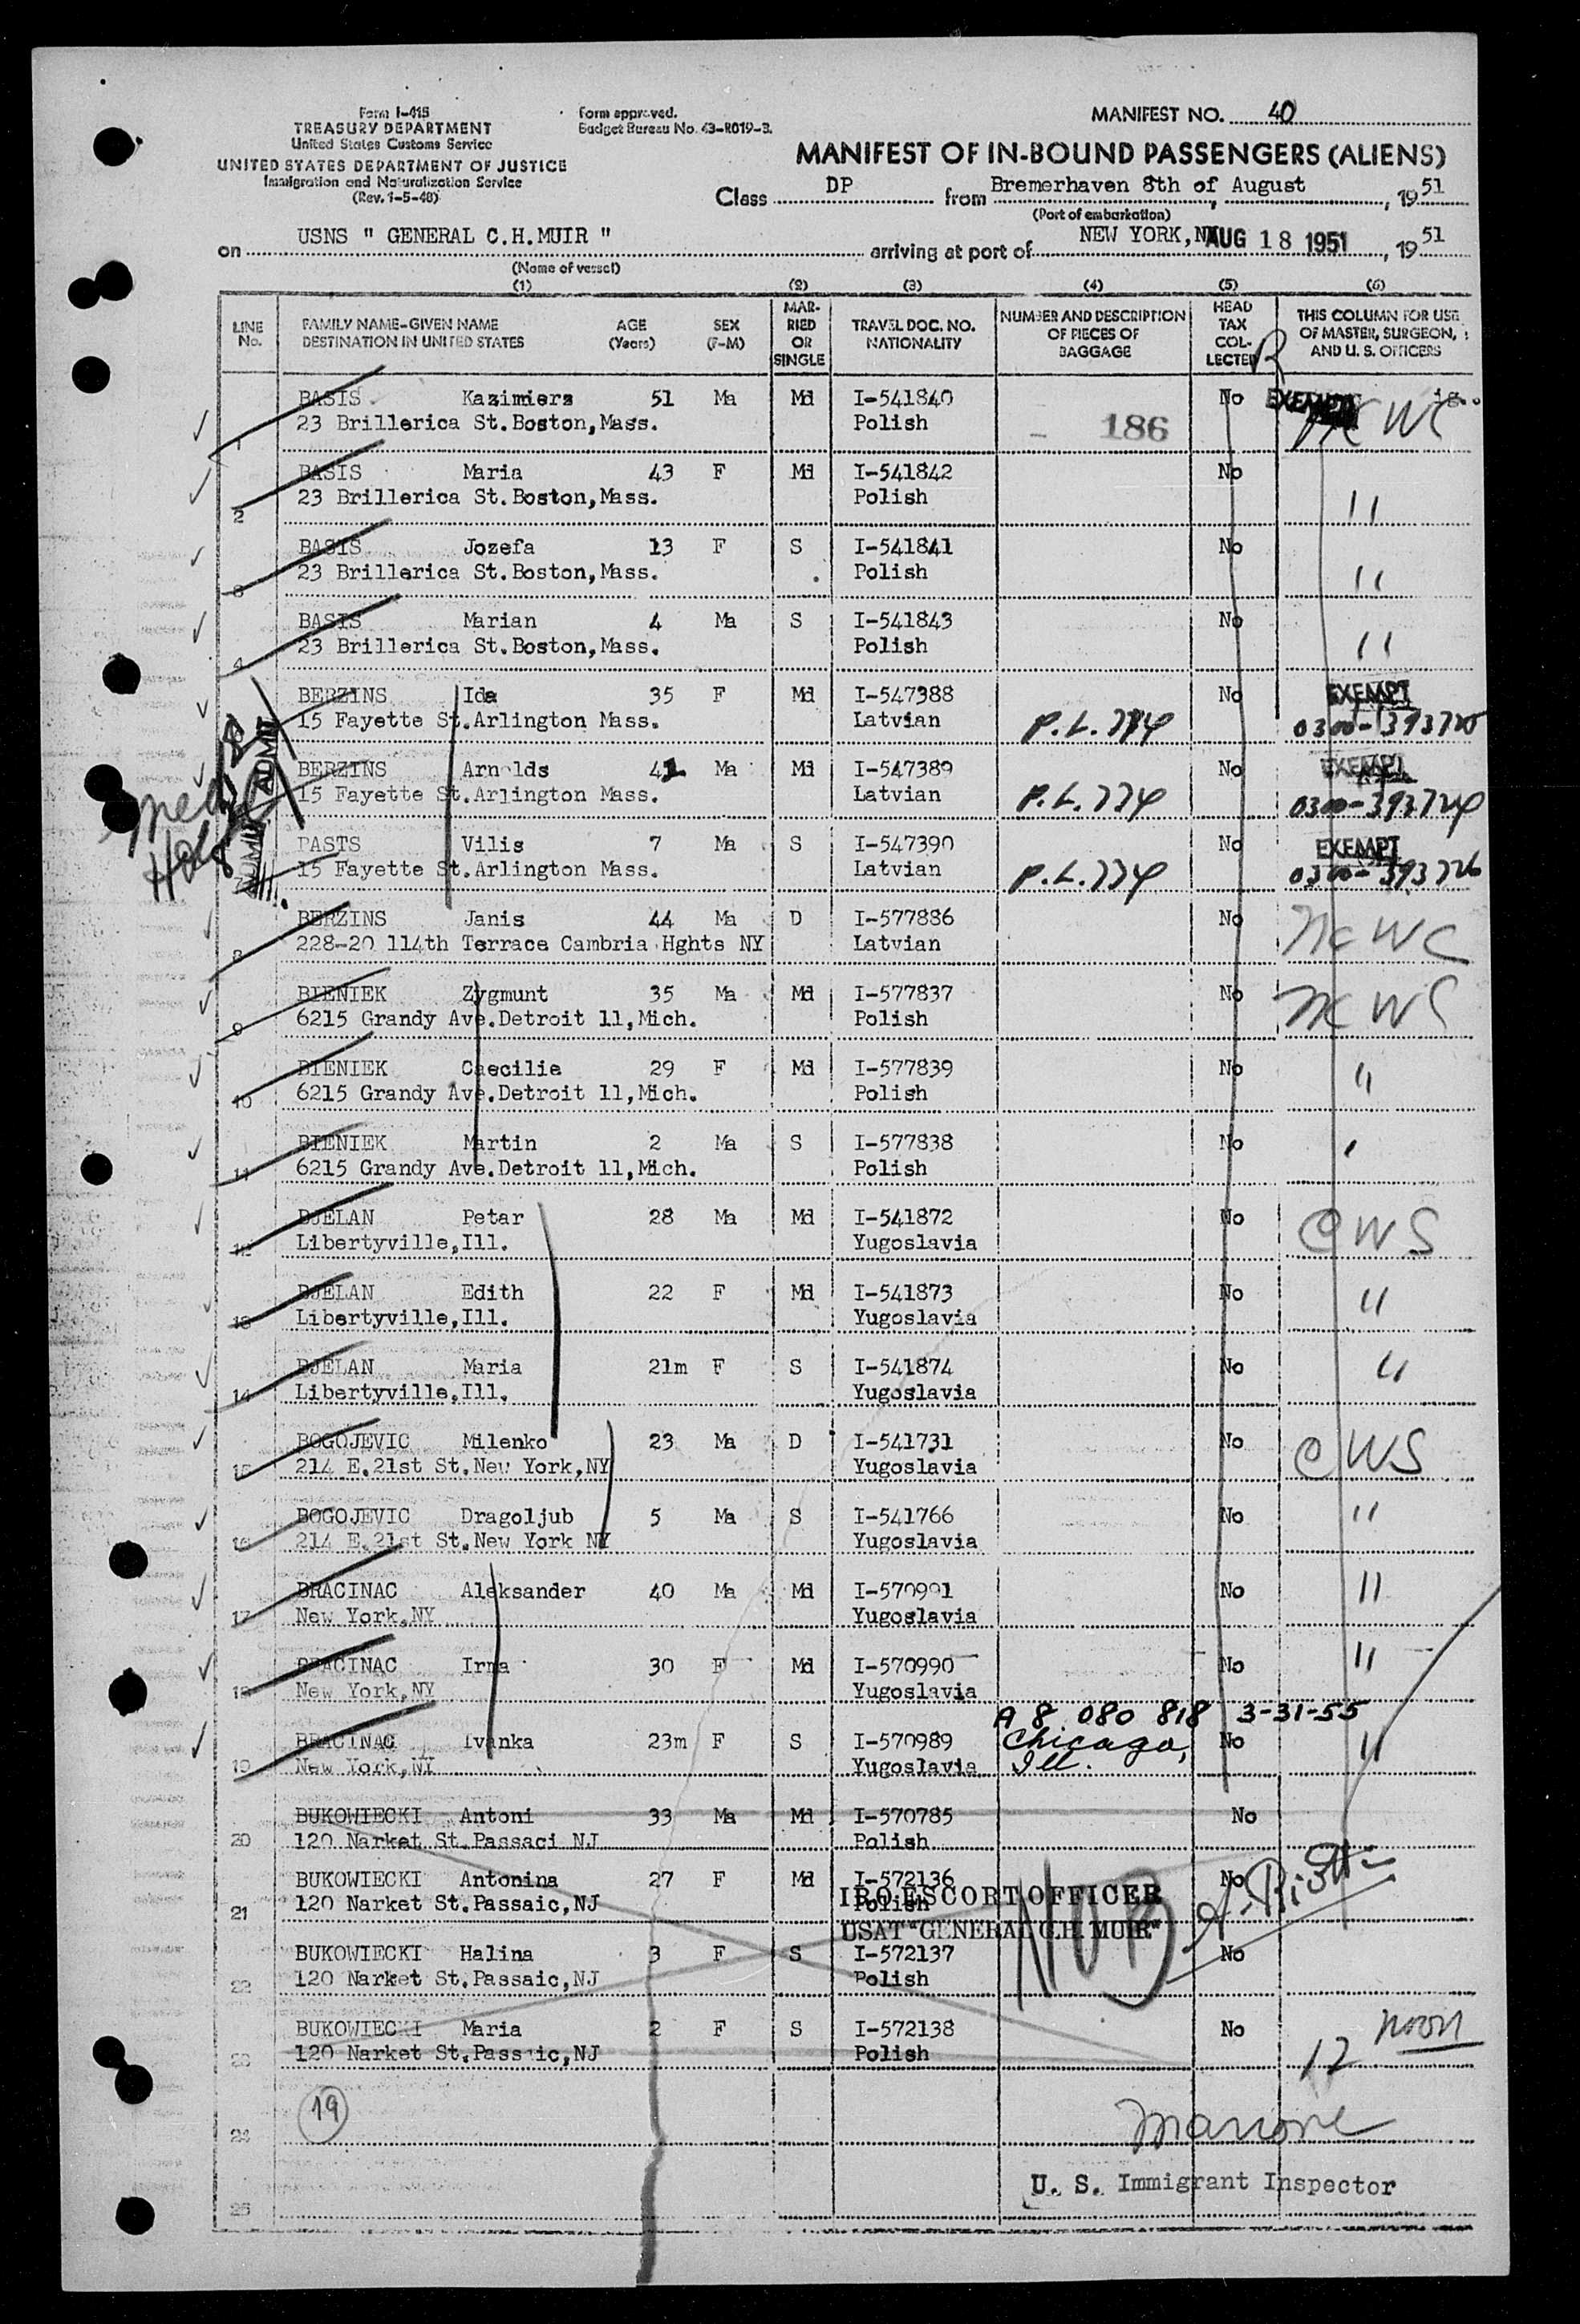 Form I-415
TREASURY DEPARTMENT
United States Customs Service
UNITED STATES DEPARTMENT OF JUSTICE
Immigration and Naturalization Service
(Rev. 1-5-48)
Form approved.
Budget Bureau No. 43-R019-3.
MANIFEST NO. 40
MANIFEST OF IN-BOUND PASSENGERS (ALIENS)
Class DP from Bremerhaven 8th of August, 1951
(Port of embarkation)
on USNS " GENERAL C.H.MUIR " arriving at port of NEW YORK,NY AUG 18 1951, 1951
(Name of vessel)
(1) (2) (3) (4) (5) (6)
LINE No. FAMILY NAME-GIVEN NAME DESTINATION IN UNITED STATES AGE (Years) SEX (F-M) MARRIED OR SINGLE TRAVEL DOC. NO. NATIONALITY NUMBER AND DESCRIPTION OF PIECES OF BAGGAGE HEAD TAX COLLECTED THIS COLUMN FOR USE OF MASTER, SURGEON, AND U. S. OFFICERS
1 BASIS Kazimiera 51 Ma Md I-541840 No
23 Brillerica St.Boston,Mass. Polish - 186
2 BASIS Maria 43 F Md I-541842 No
23 Brillerica St.Boston,Mass. Polish "
3 BASIS Jozefa 13 F S I-541841 No
23 Brillerica St.Boston,Mass. Polish "
4 BASIS Marian 4 Ma S I-541843 No
23 Brillerica St.Boston,Mass. Polish "
BERZINS Ida 35 F Md I-547388 No EXEMPT
15 Fayette St.Arlington Mass. Latvian P.L.774 0300-393725
BERZINS Arnolds 42 Ma Md I-547389 No EXEMPT
15 Fayette St.Arlington Mass. Latvian P.L.774 0300-393724
PASTS Vilis 7 Ma S I-547390 No EXEMPT
15 Fayette St.Arlington Mass. Latvian P.L.774 0300-393726
ADMIT
8 BERZINS Janis 44 Ma D I-577886 No NCWC
228-20 114th Terrace Cambria Hghts NY Latvian
9 BIENIEK Zygmunt 35 Ma Md I-577837 No NCWC
6215 Grandy Ave.Detroit 11,Mich. Polish
10 BIENIEK Caecilie 29 F Md I-577839 No "
6215 Grandy Ave.Detroit 11,Mich. Polish
11 BIENIEK Martin 2 Ma S I-577838 No "
6215 Grandy Ave.Detroit 11,Mich. Polish
12 BJELAN Petar 28 Ma Md I-541872 No CWS
Libertyville,Ill. Yugoslavia
13 BJELAN Edith 22 F Md I-541873 No "
Libertyville,Ill. Yugoslavia
14 BJELAN Maria 21m F S I-541874 No "
Libertyville,Ill. Yugoslavia
15 BOGOJEVIC Milenko 23 Ma D I-541731 No CWS
214 E.21st St.New York,NY Yugoslavia
16 BOGOJEVIC Dragoljub 5 Ma S I-541766 No "
214 E.21st St.New York NY Yugoslavia
17 BRACINAC Aleksander 40 Ma Md I-570991 No "
New York,NY Yugoslavia
18 BRACINAC Irma 30 F Md I-570990 No "
New York,NY Yugoslavia
A 8 080 818 3-31-55
19 BRACINAC Ivanka 23m F S I-570989 Chicago, No "
New York,NY Yugoslavia Ill.
BUKOWIECKI Antoni 33 Ma Md I-570785 No
20 120 Narket St.Passaci NJ Polish
BUKOWIECKI Antonina 27 F Md I-572136 No
21 120 Narket St.Passaic,NJ Polish
IRO ESCORT OFFICER
USAT "GENERAL C.H. MUIR"
NOB
BUKOWIECKI Halina 3 F S I-572137 No
22 120 Narket St.Passaic,NJ Polish
BUKOWIECKI Maria 2 F S I-572138 No
23 120 Narket St.Passaic,NJ Polish
12 noon
19
24
U. S. Immigrant Inspector
25